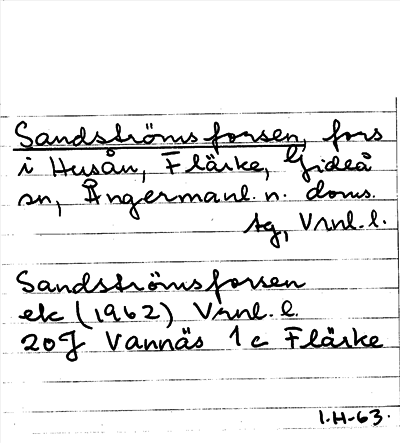 Sandströmsforsen, fors
i Husån, Flärke, Gideå
sn, Ångermanl. n. doms.
sg, Vrnl. l.
Sandströmsforsen
ek (1962) Vrnl. l.
20J Vännäs 1c Flärke
I.H-63.